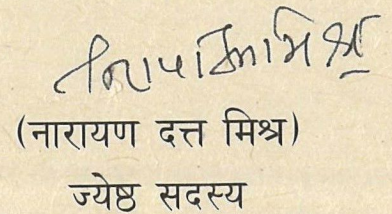 (नारायण दत्त मिश्र)
ज्येष्ठ सदस्य